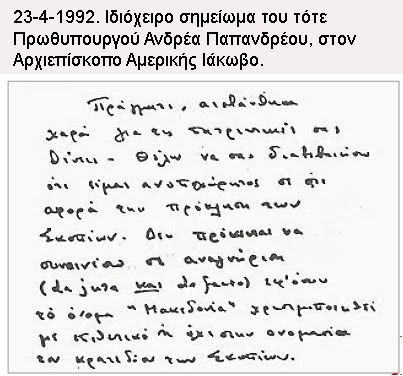 23-4-1992. Ιδιόχειρο σημείωμα του τότε
Πρωθυπουργού Ανδρέα Παπανδρέου, στον
Αρχιεπίσκοπο Αμερικής Ιάκωβο.
Πράγματι, αισθάνθηκα
χαρά για τις πατριωτικές σας
θέσεις - Θέλω να σας διαβεβαιώσω
ότι είμαι ανυποχώρητος σε ότι
αφορά την πρόκληση των
Σκοπίων. Δεν πρόκειται να
συναινέσω σε αναγνώριση
(de jure και de facto) εφ' όσον
το όνομα "Μακεδονία" χρησιμοποιηθεί
με επιθετικό ή όχι στην ονομασία
του κρατιδίου των Σκοπίων.